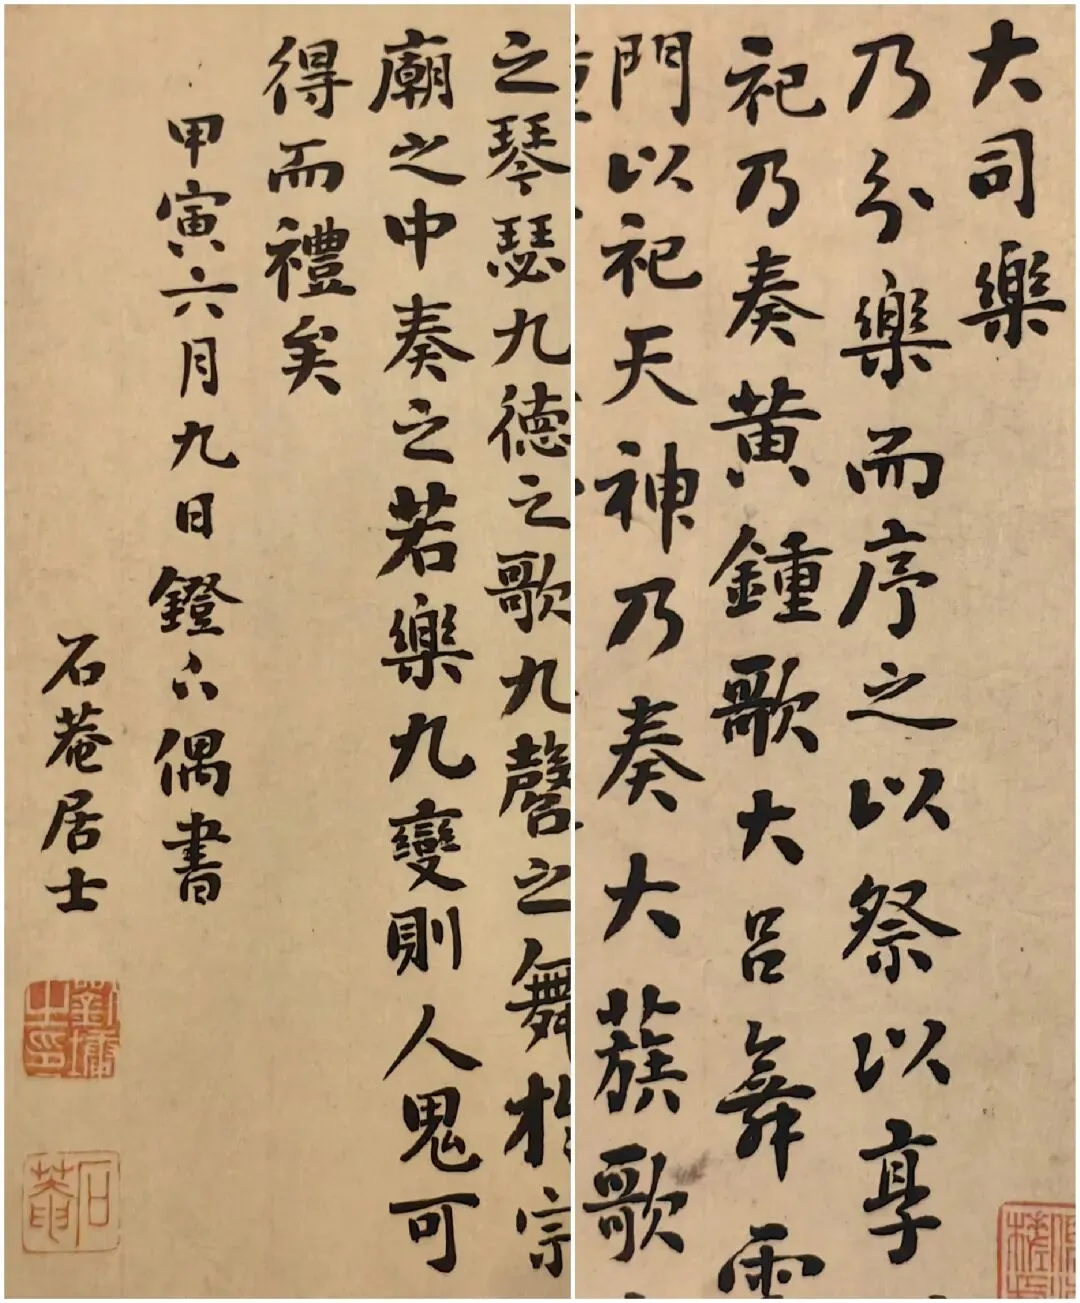 大司樂
乃分樂而序之以祭以享
祀乃奏黃鍾歌大呂舞雲
門以祀天神乃奏大蔟歌
之琴瑟九德之歌九磬之舞於宗
廟之中奏之若樂九變則人鬼可
得而禮矣
甲寅六月九日鐙下偶書
石菴居士
劉墉之印
石菴